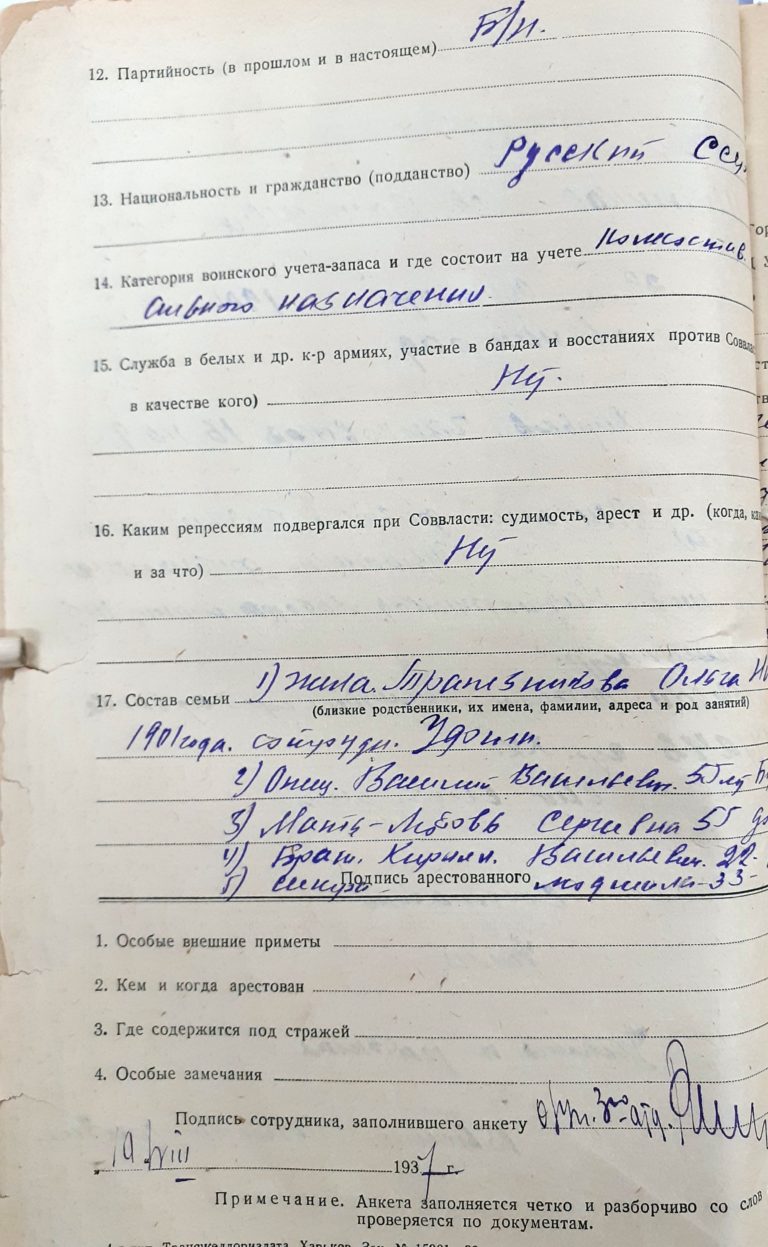 Б/п.
12. Партийность (в прошлом и в настоящем)
13. Национальность и гражданство (подданство) Русский ССС
14. Категория воинского учета-запаса и где состоит на учете
назначения.
15. Служба в белых и др. к-р армиях, участие в бандах и восстаниях против Соввла
в качестве кого) Нет.
16. Каким репрессиям подвергался при Соввласти: судимость, арест и др. (когда,
и за что) Нет
17. Состав семьи 1) жена. Ольга
(близкие родственники, их имена, фамилии, адреса и род занятий)
1901 года.
2) Отец. Василий Васильевич. 55 л
3) Мать-Любовь Сергевна 55
4) Брат. Кирилл. Васильевич. 22-
5) сестра Подпись арестованного 33-
1. Особые внешние приметы
2. Кем и когда арестован
3. Где содержится под стражей
4. Особые замечания
Подпись сотрудника, заполнившего анкету
„19/VIII 1937 г.
Примечание. Анкета заполняется четко и разборчиво со слов
проверяется по документам.